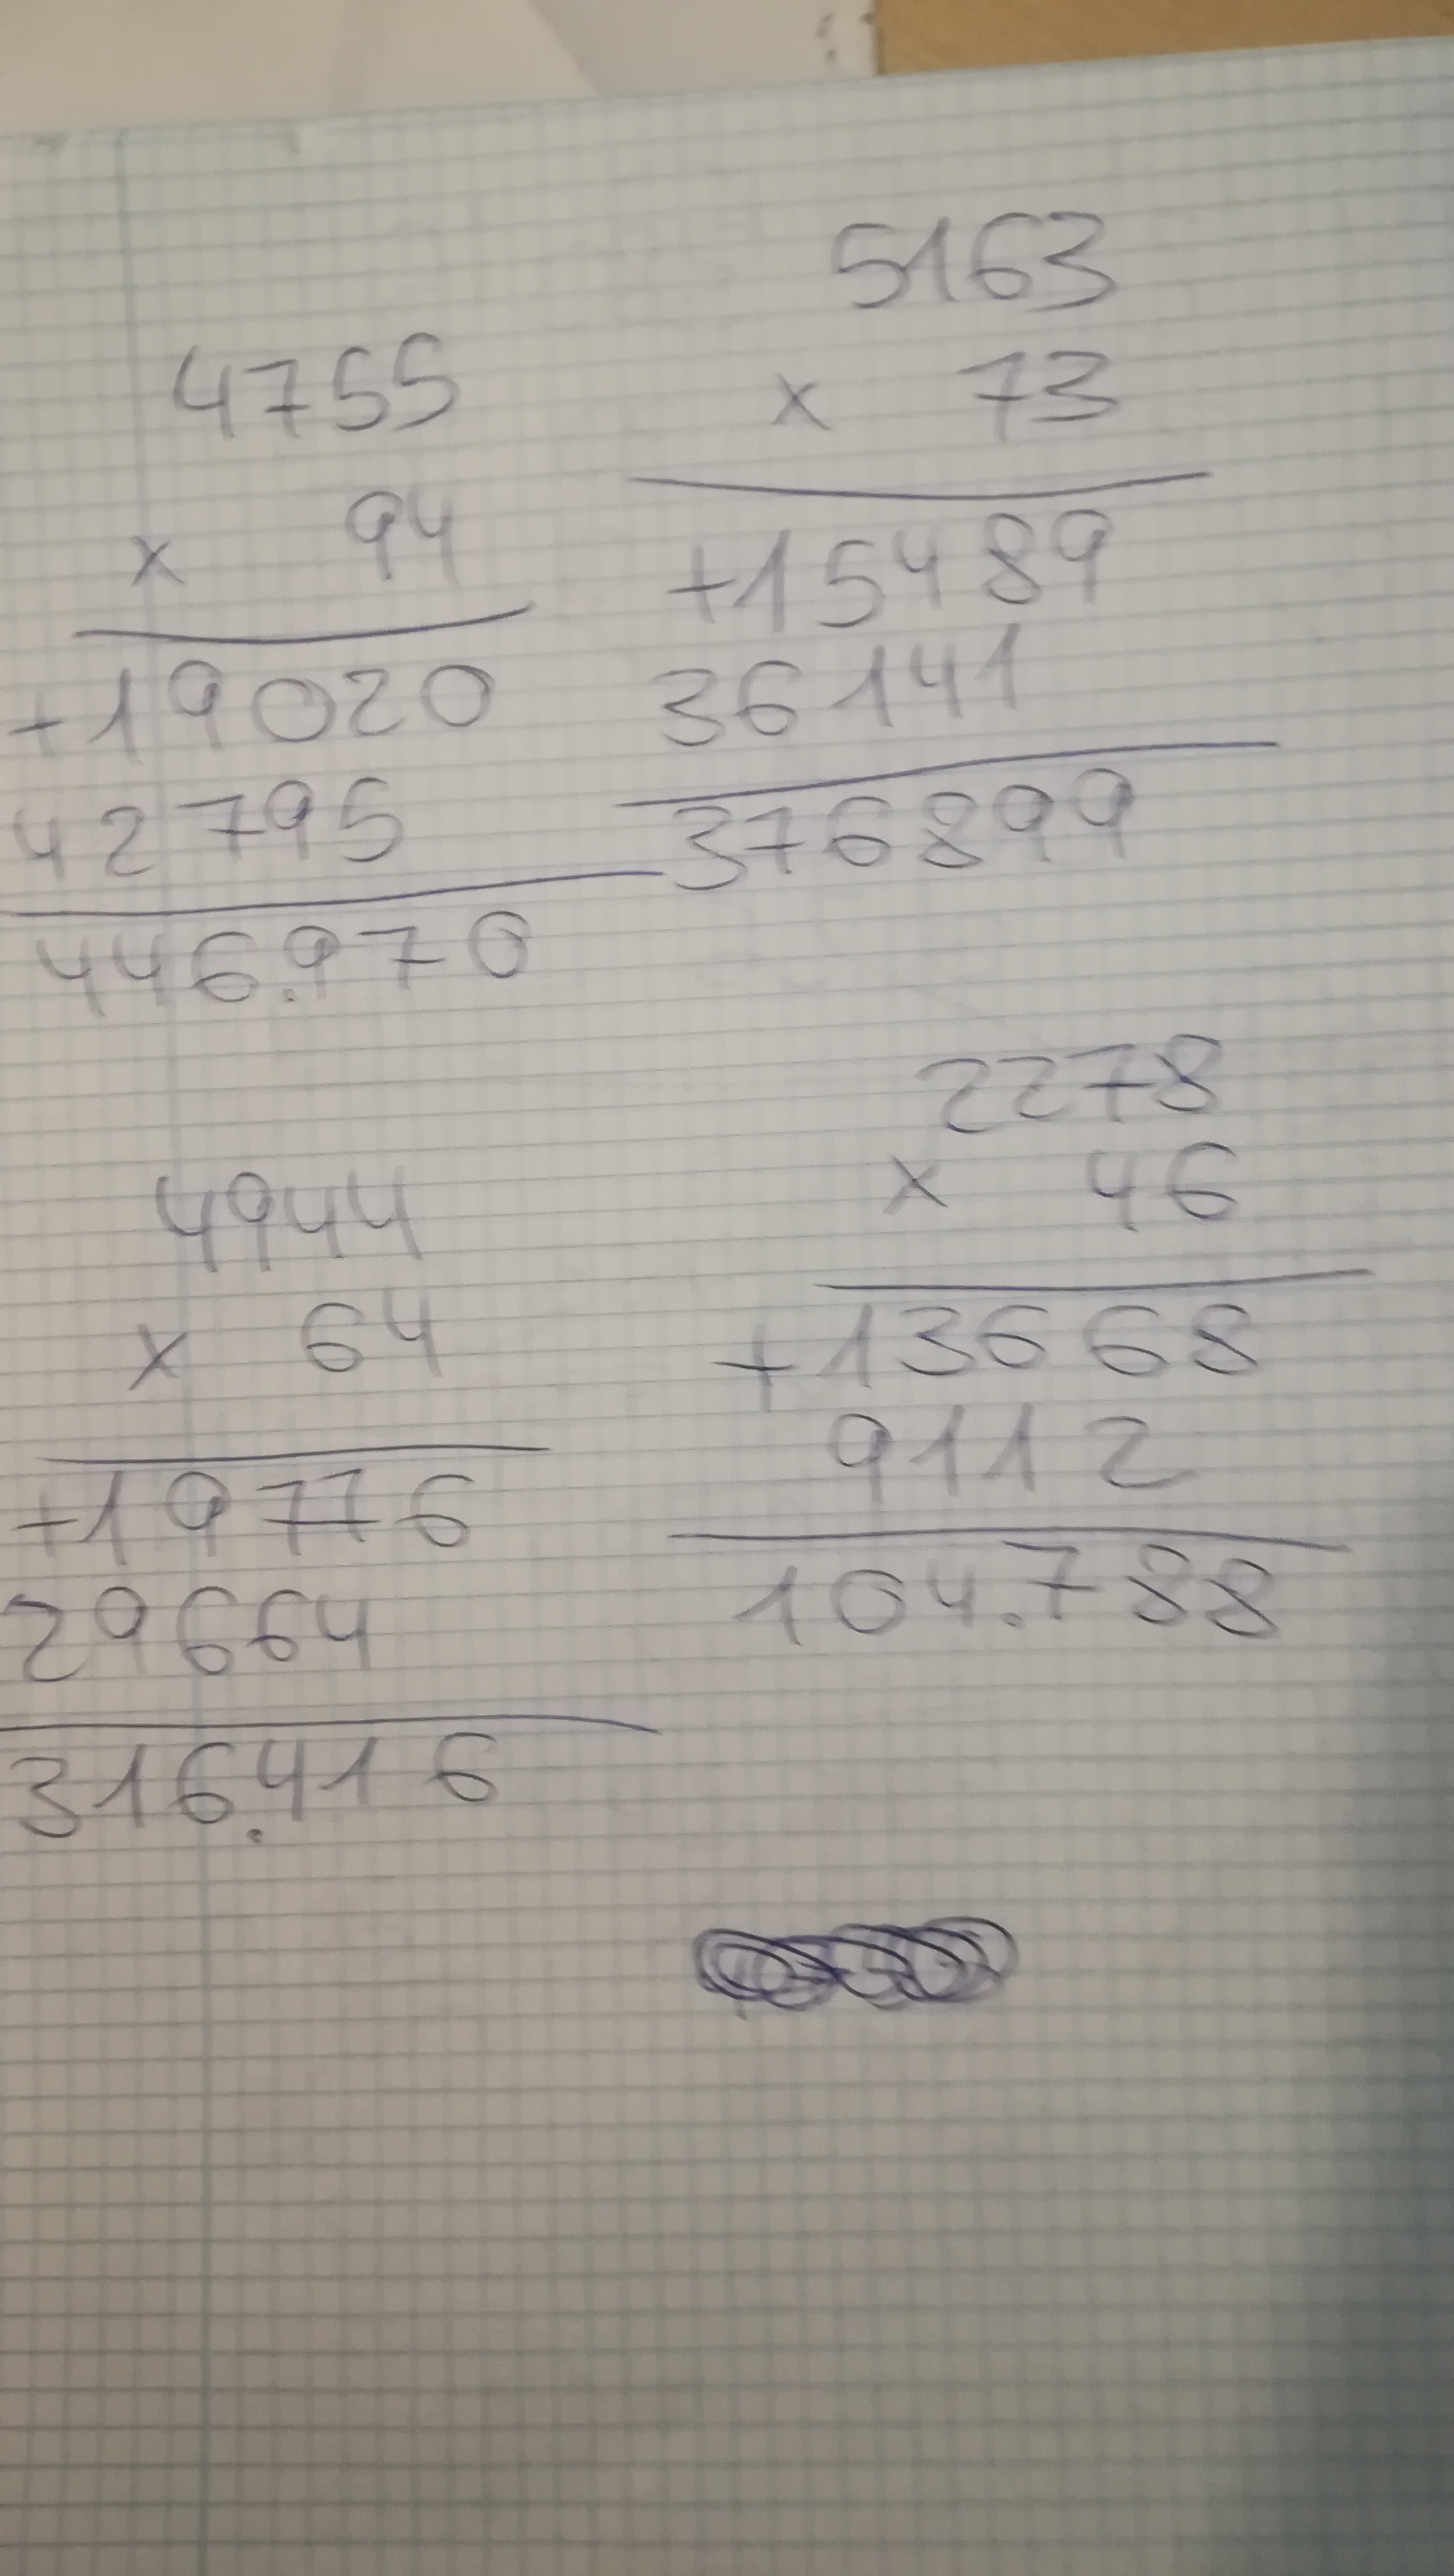 4755
x 94
+19020
42795
446.970
5163
x 73
+15489
36141
376899
4944
x 64
+19776
29664
316.416
2278
x 46
+13668
9112
104.788